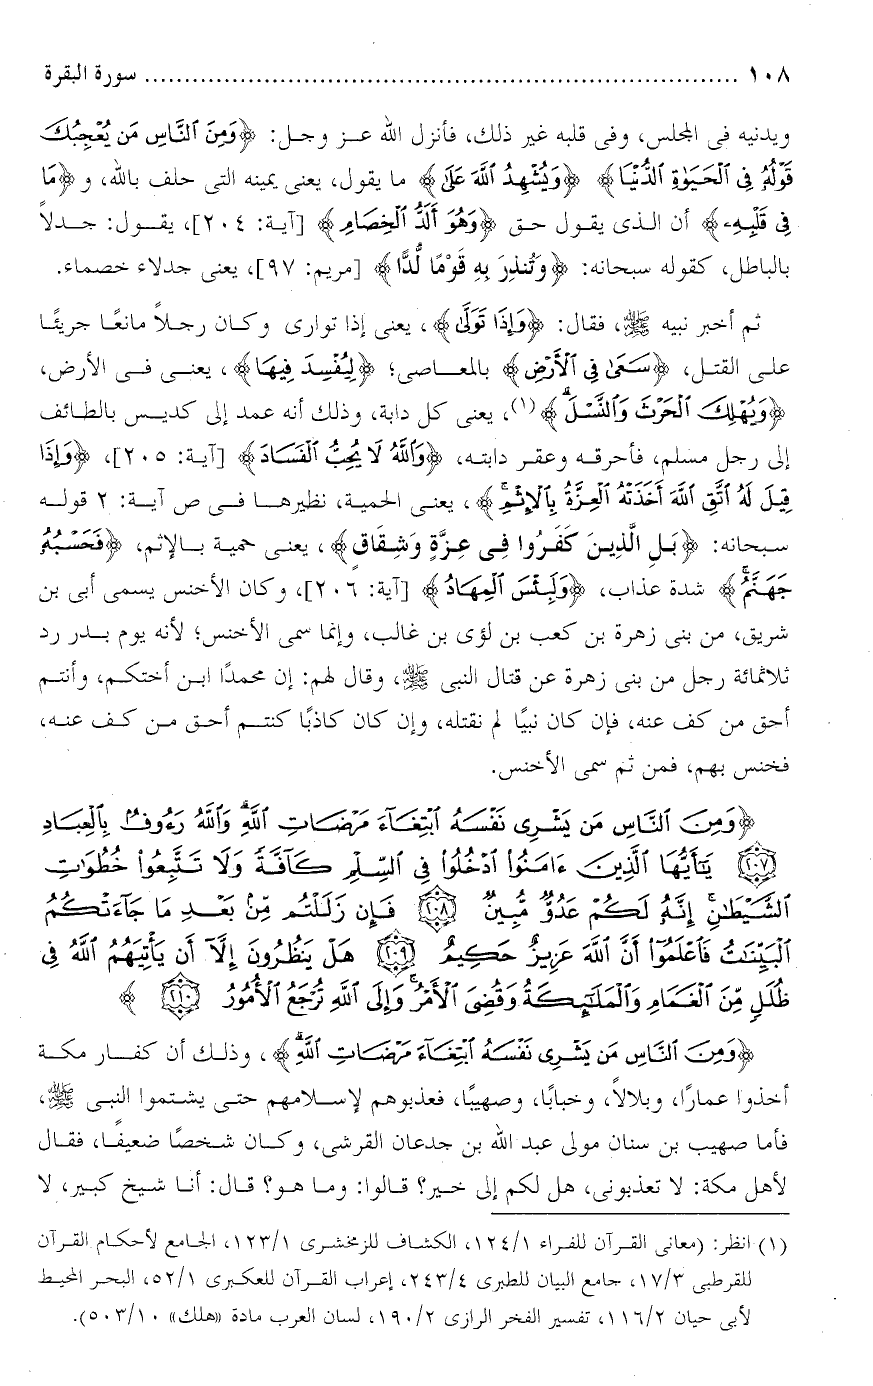 ١٠٨ ........................................................................... سورة البقرة
ويدنيه فى المجلس، وفى قلبه غير ذلك، فأنزل الله عز وجل: ﴿وَمِنَ ٱلنَّاسِ مَن يُعْجِبُكَ
قَوْلُهُۥ فِى ٱلْحَيَوٰةِ ٱلدُّنْيَا﴾ ﴿وَيُشْهِدُ ٱللَّهَ عَلَىٰ﴾ ما يقول، يعنى يمينه التى حلف بالله، و ﴿مَا
فِى قَلْبِهِۦ﴾ أن الذى يقول حق ﴿وَهُوَ أَلَدُّ ٱلْخِصَامِ﴾ [آية: ٢٠٤]، يقول: جدلاً
بالباطل، كقوله سبحانه: ﴿وَتُنذِرَ بِهِ قَوْمًا لُّدًّا﴾ [مريم: ٩٧]، يعنى جدلاء خصماء.
ثم أخبر نبيه ﷺ، فقال: ﴿وَإِذَا تَوَلَّىٰ﴾، يعنى إذا توارى وكان رجلاً مانعًا جريئًا
على القتل، ﴿سَعَىٰ فِى ٱلْأَرْضِ﴾ بالمعاصى؛ ﴿لِيُفْسِدَ فِيهَا﴾، يعنى فى الأرض،
﴿وَيُهْلِكَ ٱلْحَرْثَ وَٱلنَّسْلَ ۗ﴾(١)، يعنى كل دابة، وذلك أنه عمد إلى كديس بالطائف
إلى رجل مسلم، فأحرقه وعقر دابته، ﴿وَٱللَّهُ لَا يُحِبُّ ٱلْفَسَادَ﴾ [آية: ٢٠٥]، ﴿وَإِذَا
قِيلَ لَهُ ٱتَّقِ ٱللَّهَ أَخَذَتْهُ ٱلْعِزَّةُ بِٱلْإِثْمِ ۚ﴾، يعنى الحمية، نظيرها فى ص آية: ٢ قوله
سبحانه: ﴿بَلِ الَّذِينَ كَفَرُوا فِى عِزَّةٍ وَشِقَاقٍ﴾، يعنى حمية بالإثم، ﴿فَحَسْبُهُۥ
جَهَنَّمُ ۚ﴾ شدة عذاب، ﴿وَلَبِئْسَ ٱلْمِهَادُ﴾ [آية: ٢٠٦]، وكان الأخنس يسمى أبى بن
شريق، من بنى زهرة بن كعب بن لؤى بن غالب، وإنما سمى الأخنس؛ لأنه يوم بدر رد
ثلاثمائة رجل من بنى زهرة عن قتال النبى ﷺ، وقال لهم: إن محمدًا ابن أختكم، وأنتم
أحق من كف عنه، فإن كان نبيًا لم نقتله، وإن كان كاذبًا كنتم أحق من كف عنه،
فخنس بهم، فمن ثم سمى الأخنس.
﴿وَمِنَ ٱلنَّاسِ مَن يَشْرِى نَفْسَهُ ٱبْتِغَآءَ مَرْضَاتِ ٱللَّهِ ۗ وَٱللَّهُ رَءُوفٌۢ بِٱلْعِبَادِ
٢٠٧ يَٰٓأَيُّهَا ٱلَّذِينَ ءَامَنُوا۟ ٱدْخُلُوا۟ فِى ٱلسِّلْمِ كَآفَّةً وَلَا تَتَّبِعُوا۟ خُطُوَٰتِ
ٱلشَّيْطَٰنِ ۚ إِنَّهُۥ لَكُمْ عَدُوٌّ مُّبِينٌ ٢٠٨ فَإِن زَلَلْتُم مِّنۢ بَعْدِ مَا جَآءَتْكُمُ
ٱلْبَيِّنَٰتُ فَٱعْلَمُوٓا۟ أَنَّ ٱللَّهَ عَزِيزٌ حَكِيمٌ ٢٠٩ هَلْ يَنظُرُونَ إِلَّآ أَن يَأْتِيَهُمُ ٱللَّهُ فِى
ظُلَلٍ مِّنَ ٱلْغَمَامِ وَٱلْمَلَٰٓئِكَةُ وَقُضِىَ ٱلْأَمْرُ ۚ وَإِلَى ٱللَّهِ تُرْجَعُ ٱلْأُمُورُ ٢١٠ ﴾
﴿وَمِنَ ٱلنَّاسِ مَن يَشْرِى نَفْسَهُ ٱبْتِغَآءَ مَرْضَاتِ ٱللَّهِ ۗ﴾، وذلك أن كفار مكة
أخذوا عمارًا، وبلالاً، وخبابًا، وصهيبًا، فعذبوهم لإسلامهم حتى يشتموا النبى ﷺ،
فأما صهيب بن سنان مولى عبد الله بن جدعان القرشى، وكان شخصًا ضعيفًا، فقال
لأهل مكة: لا تعذبونى، هل لكم إلى خير؟ قالوا: وما هو؟ قال: أنا شيخ كبير، لا
(١) انظر: (معانى القرآن للفراء ١٢٤/١، الكشاف للزمخشرى ١٢٣/١، الجامع لأحكام القرآن
للقرطبى ١٧/٣، جامع البيان للطبرى ٢٤٣/٤، إعراب القرآن للعكبرى ٥٢/١، البحر المحيط
لأبى حيان ١١٦/٢، تفسير الفخر الرازى ١٩٠/٢، لسان العرب مادة «هلك» ٥٠٣/١٠).